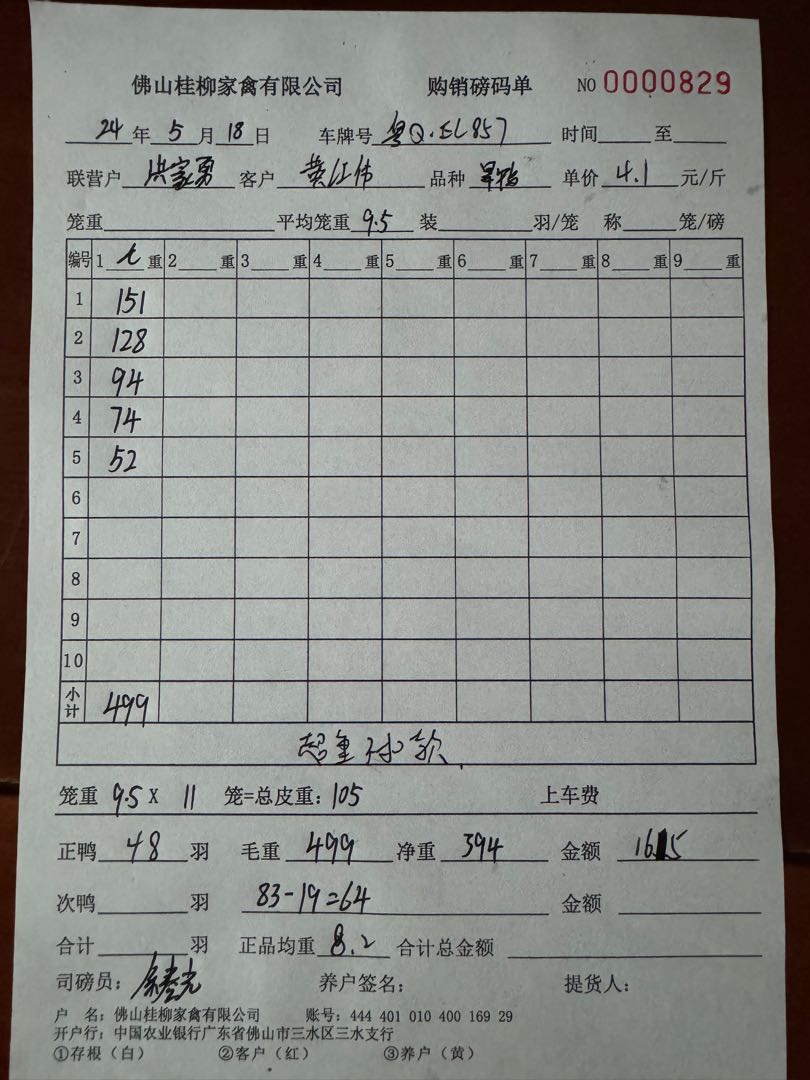 佛山桂柳家禽有限公司 购销磅码单 NO 0000829
24 年 5 月 18 日 车牌号 粤Q·EL857 时间 至
联营户 洪家勇 客户 黄江伟 品种 单价 4.1 元/斤
笼重 平均笼重 9.5 装 羽/笼 称 笼/磅
编号 1 七 重 2 重 3 重 4 重 5 重 6 重 7 重 8 重 9 重
1 151
2 128
3 94
4 74
5 52
6
7
8
9
10
小计 499
超重 款
笼重 9.5 X 11 笼=总皮重: 105 上车费
正鸭 48 羽 毛重 499 净重 394 金额 1615
次鸭 羽 83-19=64 金额
合计 羽 正品均重 8.2 合计总金额
司磅员: 养户签名: 提货人:
户 名: 佛山桂柳家禽有限公司 账号: 444 401 010 400 169 29
开户行: 中国农业银行广东省佛山市三水区三水支行
①存根(白) ②客户(红) ③养户(黄)